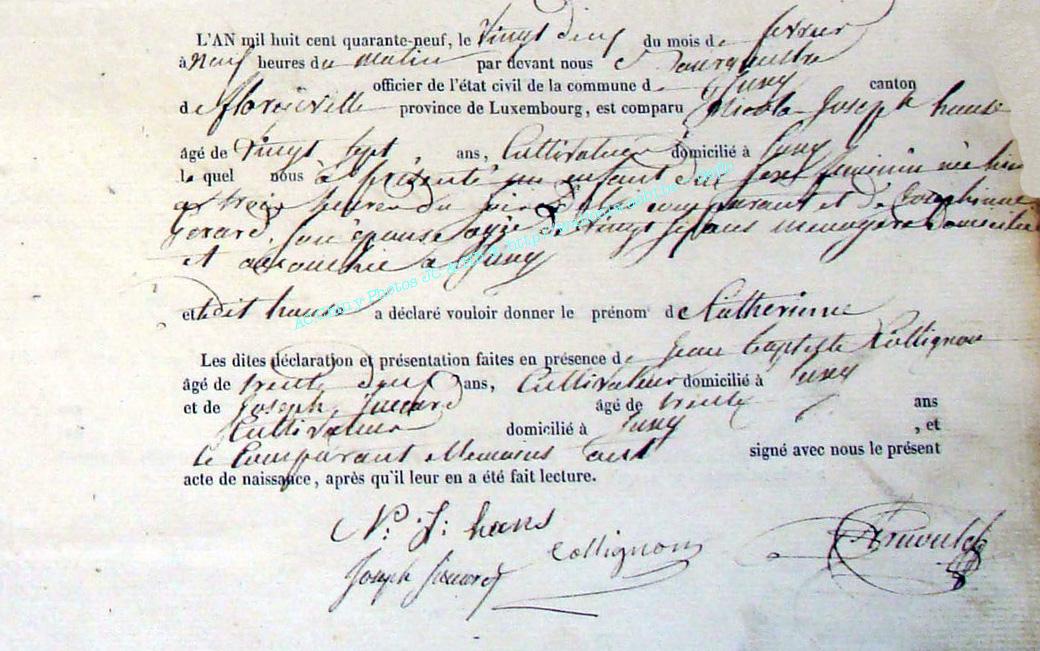 L'AN mil huit cent quarante-neuf, le Vingt deux du mois de fevrier
à Neuf heures du matin par devant nous
officier de l'état civil de la commune de Jusy canton
de florenville province de Luxembourg, est comparu Nicolas Joseph hanse
âgé de Vingt sept ans, Cultivateur domicilié à Jusy
le quel nous à présenté un enfant du sexe feminin née hier
a trois heures du soir De lui comparant et de Josephinne
Gerard, son épouse agée de vingt six ans menagere domiciliée
et accouchée a Jusy
et le dit hanse a déclaré vouloir donner le prénom de Catherinne
Les dites déclaration et présentation faites en présence de Jean baptiste Collignon
âgé de trente deux ans, Cultivateur domicilié à Jusy
et de Joseph âgé de trente ans
Cultivateur domicilié à Jusy , et
le Comparant et temoins ont signé avec nous le présent
acte de naissance, après qu'il leur en a été fait lecture.
N. J. hans
Collignon
Joseph